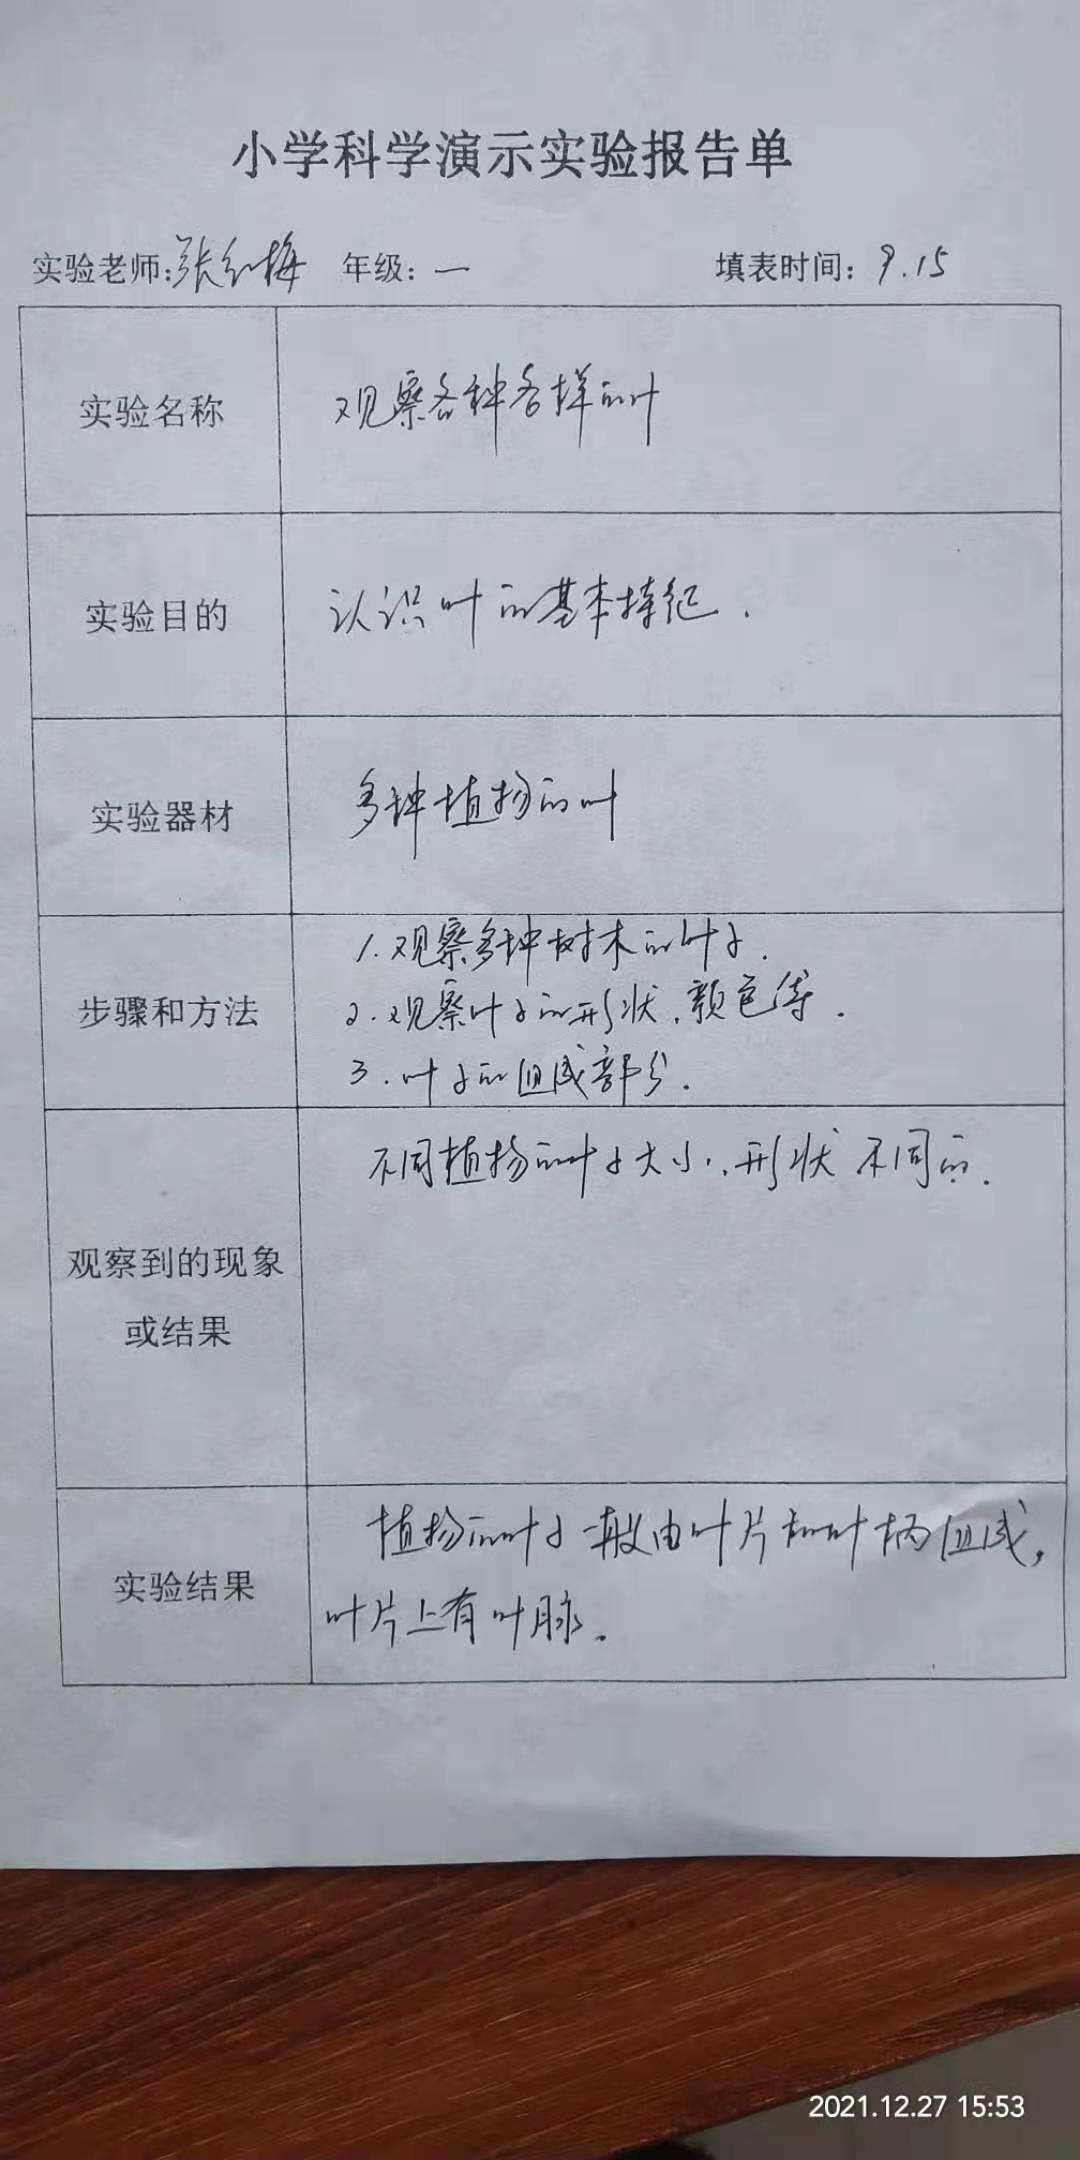 小学科学演示实验报告单
实验老师:张红梅 年级:一 填表时间:9.15
实验名称 观察各种各样的叶
实验目的 认识叶的基本特征.
实验器材 多种植物的叶
步骤和方法
1.观察多种树木的叶子.
2.观察叶子的形状、颜色等.
3.叶子的组成部分.
观察到的现象
或结果
不同植物的叶子大小、形状不同的.
实验结果
植物的叶子一般由叶片和叶柄组成,
叶片上有叶脉.
2021.12.27 15:53